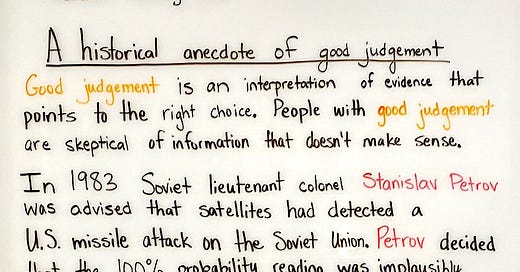 A historical anecdote of good judgement
Good judgement is an interpretation of evidence that
points to the right choice. People with good judgement
are skeptical of information that doesn't make sense.
In 1983 Soviet lieutenant colonel Stanislav Petrov
was advised that satellites had detected a
U.S. missile attack on the Soviet Union. Petrov decided
that the 100% probability reading was implausibly